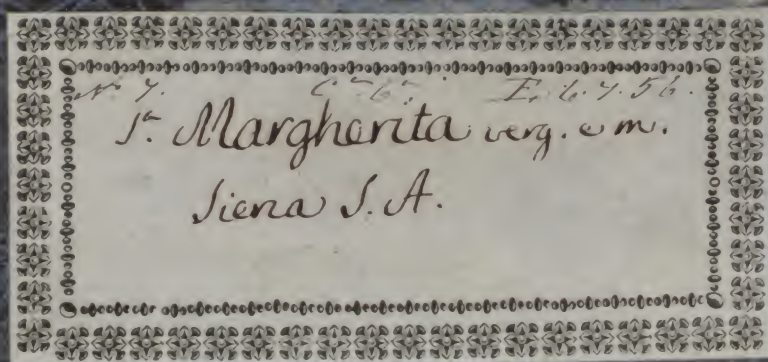 N.º 7. C.ª 6.ª E. 6. 7. 56.
S.ª Margherita verg. e m.
Siena S. A.